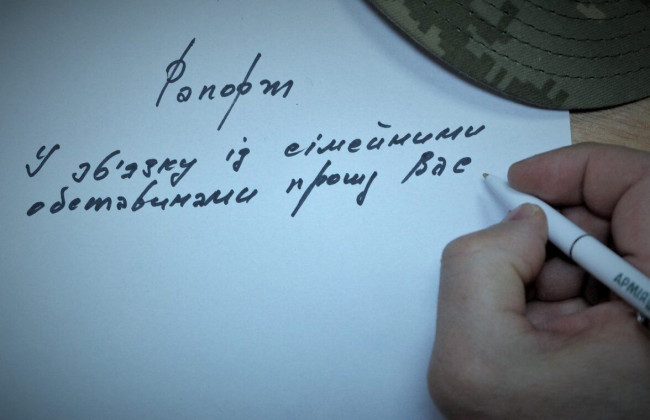 Рапорт
У зв'язку із сімейними
обставинами прошу Вас
АРМІЯ